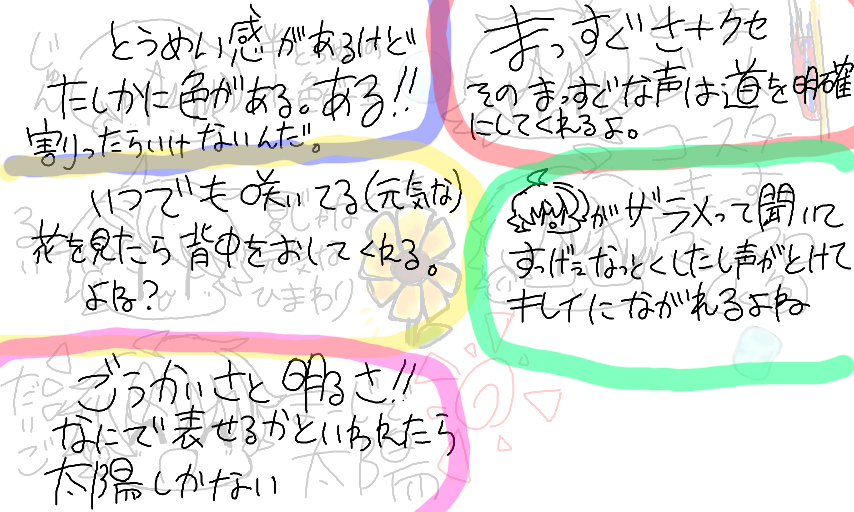 とうめい感があるけど
たしかに色がある。ある!!
割りったらいけないんだ。
まっすぐさ+クセ
そのまっすぐな声は道を明確
にしてくれるよ。
いつでも咲いてる(元気な)
花を見たら背中をおしてくれる。
よね?
がザラメって聞いて
すっげぇなっとくしたし声がとけて
キレイにながれるよね
ごうかいさと明るさ!!
なにで表せるかといわれたら
太陽しかない
ひまわり
太陽